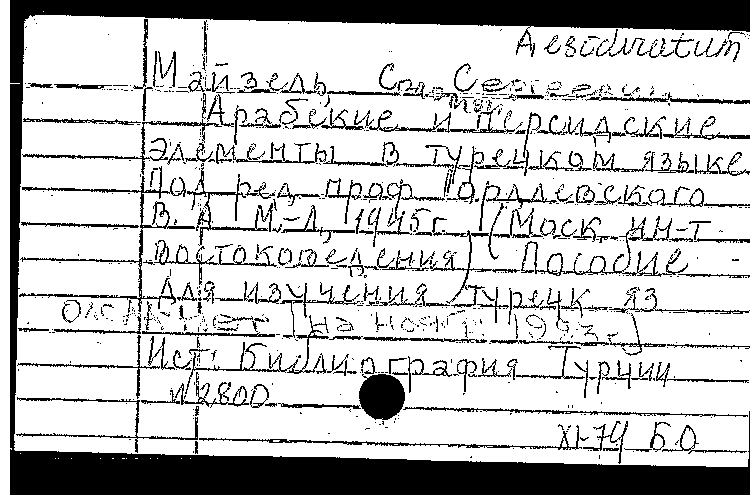 Desideratum
Майзель, Соломон Сергеевич
Арабские и персидские
элементы в турецком языке
Под ред проф Гордлевского
В. А М.-Л, 1945г. (Моск ин-т
востоковедения) Пособие
для изучения турецк яз
нет [на нояб: 1993 г.]
Ист: Библиография Турции
№2800
XI-74 БО